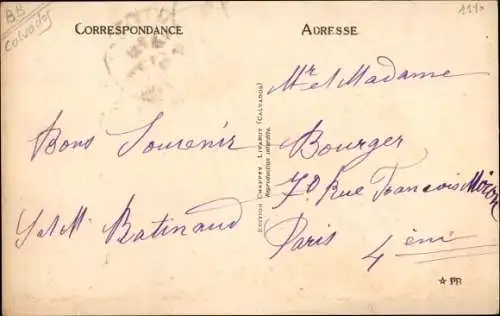 BB
Calvados
1110
CORRESPONDANCE
ADRESSE
Bons Souvenirs
Y et M. Batinaud
EDITION CHAPPEY, LIVAROT (CALVADOS)
Reproduction interdite.
Mr et Madame
Bourger
70 Rue François Miron
Paris
4 ème
☆ PB